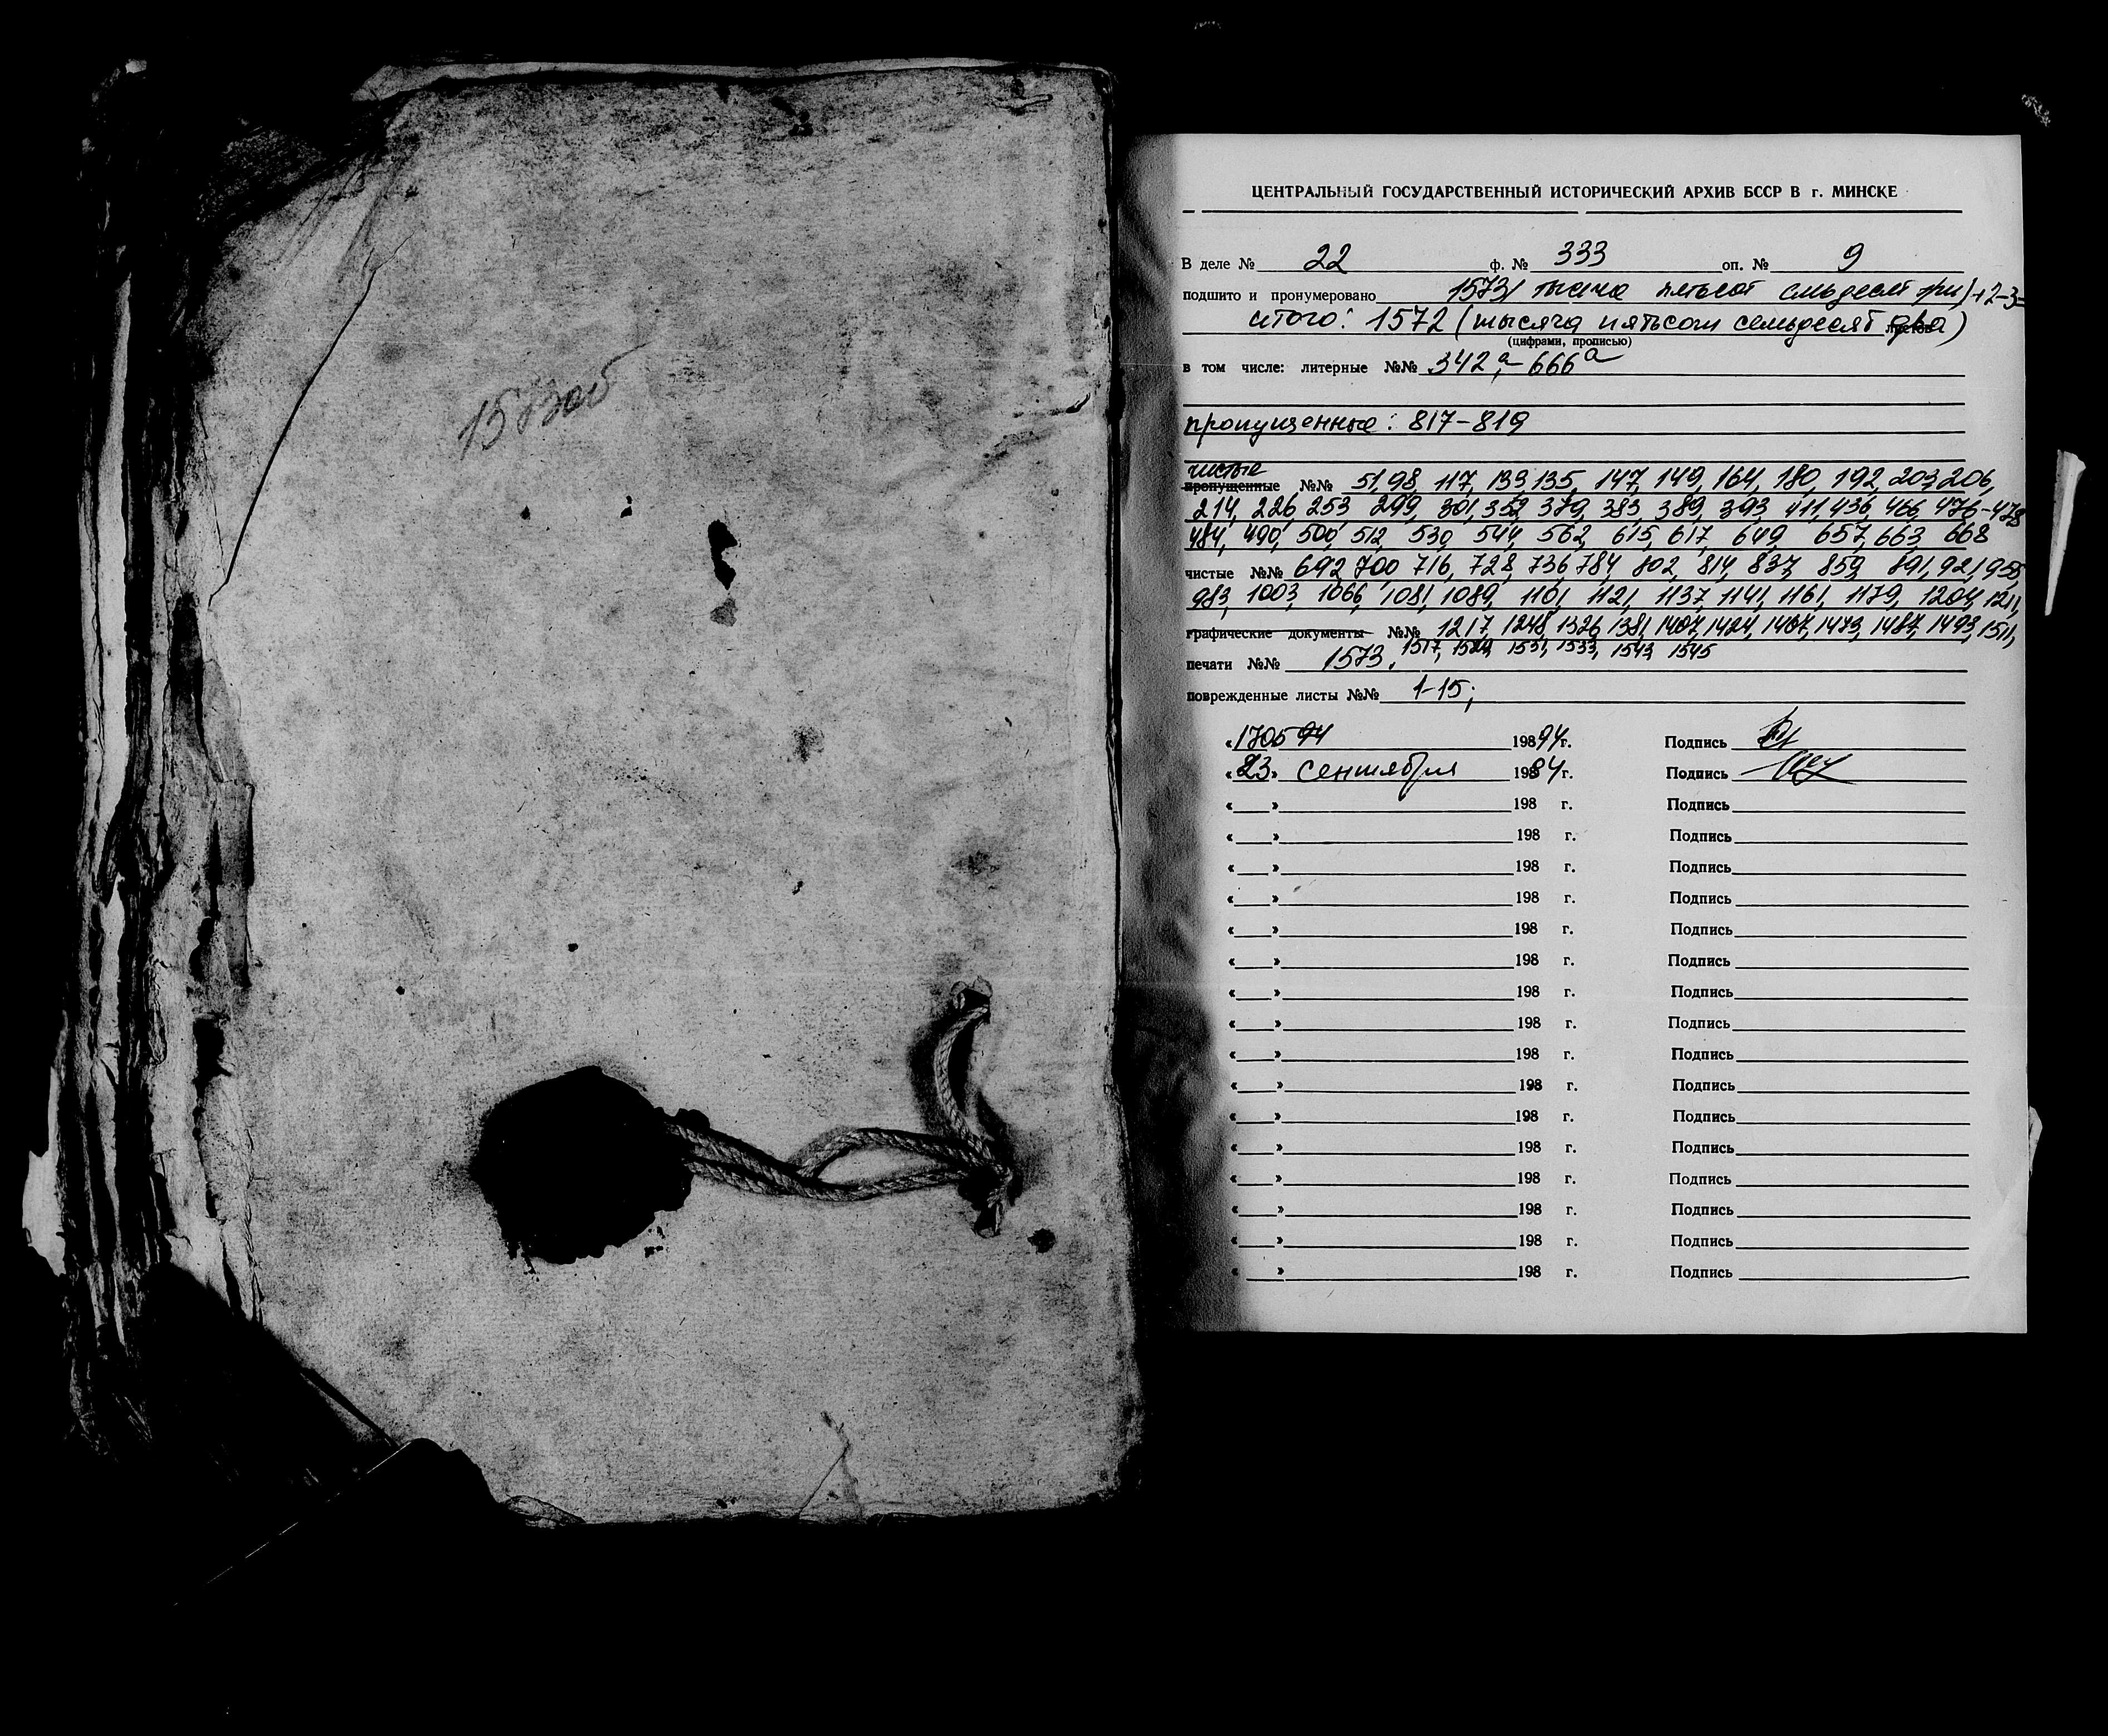 1573об
ЦЕНТРАЛЬНЫЙ ГОСУДАРСТВЕННЫЙ ИСТОРИЧЕСКИЙ АРХИВ БССР В г. МИНСКЕ
В деле № 22 ф. № 333 оп. № 9
подшито и пронумеровано 1573 (тысяча пятьсот семьдесят три) +2-3=
итого: 1572 (тысяча пятьсот семьдесят два) листов
(цифрами, прописью)
в том числе: литерные №№ 342а,-666а
пропущенные: 817-819
чистые
пропущенные №№ 51, 98, 117, 133, 135, 147, 149, 164, 180, 192, 203, 206,
214, 226, 253, 299, 301, 352, 379, 383, 389, 393, 411, 436, 466, 476-478
484, 490, 500, 512, 530, 544, 562, 615, 617, 649, 657, 663, 668
чистые №№ 692, 700, 716, 728, 736, 784, 802, 814, 837, 859, 891, 921,
983, 1003, 1066, 1081, 1089, 1101, 1121, 1137, 1141, 1161, 1179, 1204, 1211,
графические документы №№ 1217, 1248, 1326, 1381, 1407, 1424, 1467, 1473, 1487, 1493, 1511,
1517, 1531, 1533, 1543, 1545
печати №№ 1573.
поврежденные листы №№ 1-15;
«170594 19894г. Подпись
«23» сентября 19894г. Подпись
«___» 198 г. Подпись
«___» 198 г. Подпись
«___» 198 г. Подпись
«___» 198 г. Подпись
«___» 198 г. Подпись
«___» 198 г. Подпись
«___» 198 г. Подпись
«___» 198 г. Подпись
«___» 198 г. Подпись
«___» 198 г. Подпись
«___» 198 г. Подпись
«___» 198 г. Подпись
«___» 198 г. Подпись
«___» 198 г. Подпись
«___» 198 г. Подпись
«___» 198 г. Подпись